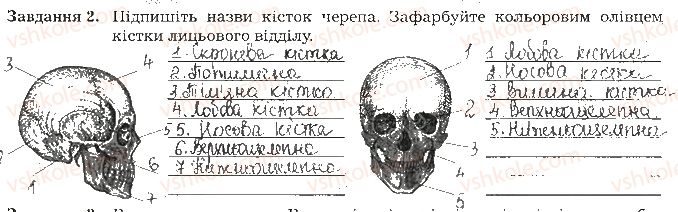 Завдання 2. Підпишіть назви кісток черепа. Зафарбуйте кольоровим олівцем
кістки лицьового відділу.
1. Скронева кістка
2. Потилична
3. Тім'яна кістко
4. Лобова кістка
5. Носова кістка
6. Верхнощелепна
7. Нижньощелепно.
3
4
2
1
5
6
7
1. Лобова кістка
2. Носова кістка
3. Вилична кістка
4. Верхньощелепна
5. Нижньощелепна
1
2
3
4
5
vshkole.com